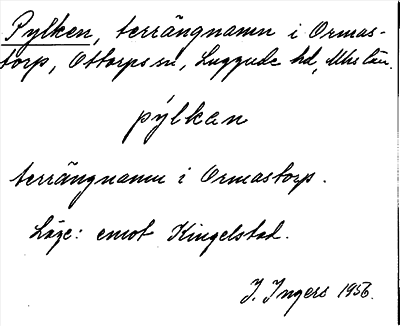 Pylken, terrängnamn i Ormas-
torp, Ottarps sn, Luggude hd, Mhs län.
pýlkan
terrängnamn i Ormastorp.
Läge: emot Kingelstad.
J. Ingers 1956.